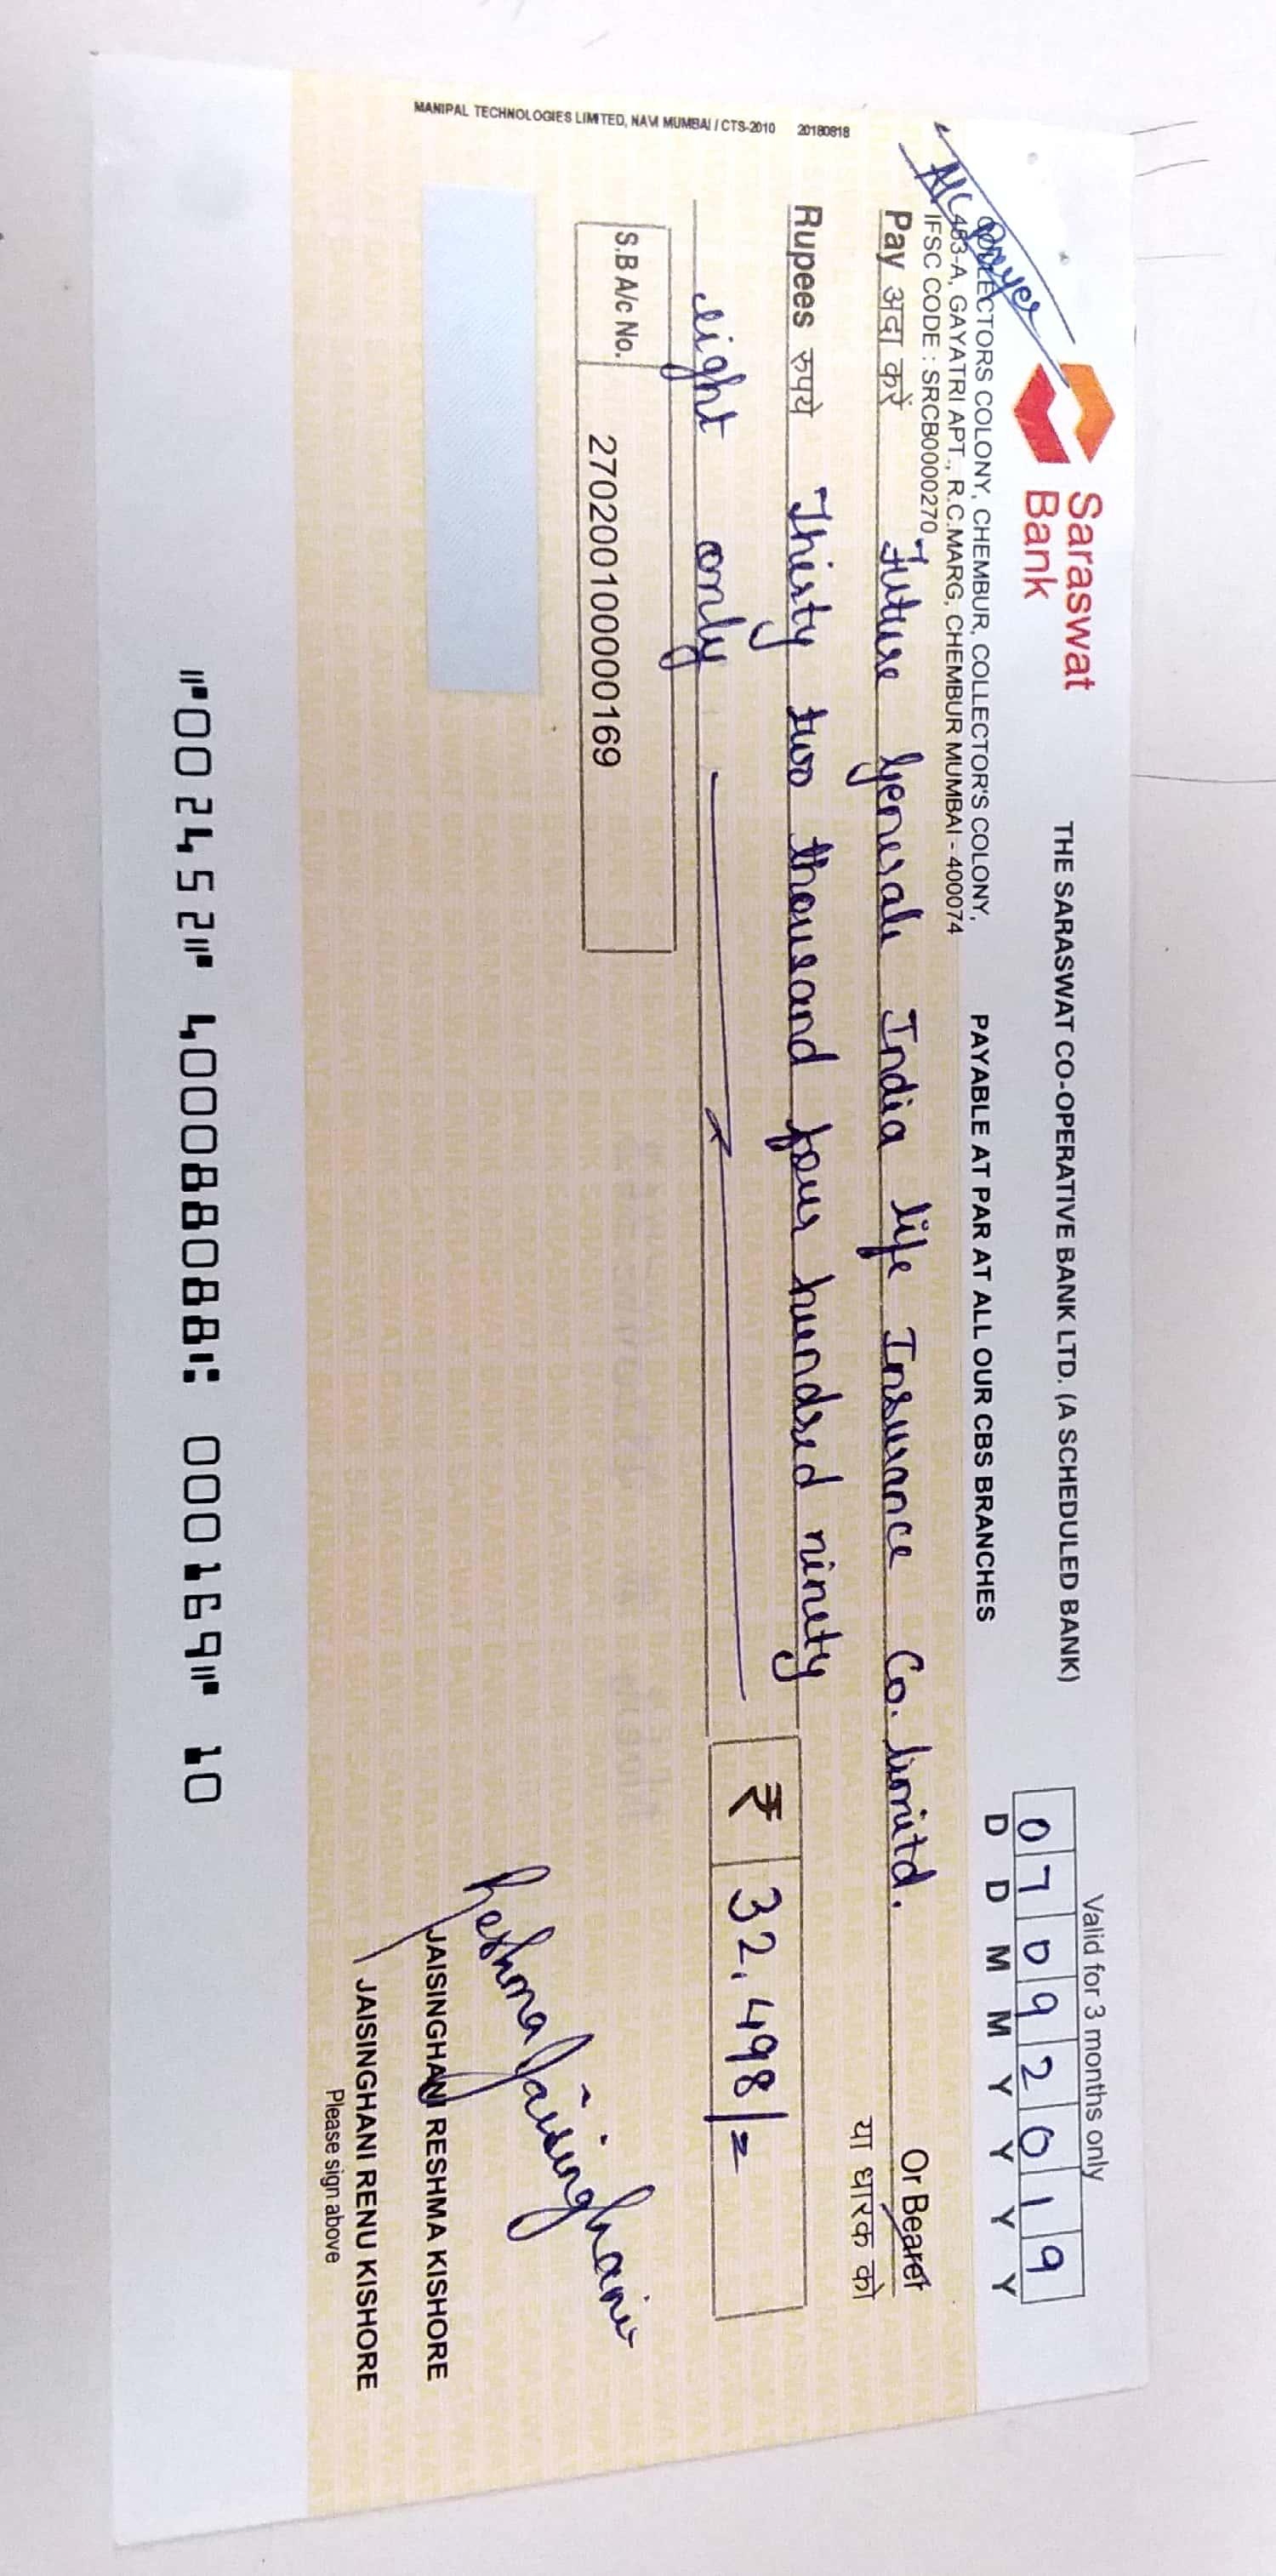 A/C Payee
Saraswat
Bank
THE SARASWAT CO-OPERATIVE BANK LTD. (A SCHEDULED BANK)
Valid for 3 months only
07092019
D D M M Y Y Y Y
COLLECTORS COLONY, CHEMBUR, COLLECTOR'S COLONY,
463-A, GAYATRI APT., R.C.MARG, CHEMBUR MUMBAI - 400074
IFSC CODE : SRCB0000270
PAYABLE AT PAR AT ALL OUR CBS BRANCHES
Pay अदा करें Future Generali India life Insurance Co. limitd. Or Bearer
या धारक को
Rupees रुपये Thirty two thousand four hundred ninety
eight only
₹ 32,498/=
S.B A/c No. 270200100000169
JAISINGHANI RESHMA KISHORE
Reshma Jaisinghani
JAISINGHANI RENU KISHORE
Please sign above
MANIPAL TECHNOLOGIES LIMITED, NAVI MUMBAI / CTS-2010 20180818
⑈002452⑈ 400088088⑆ 000169⑈ 10